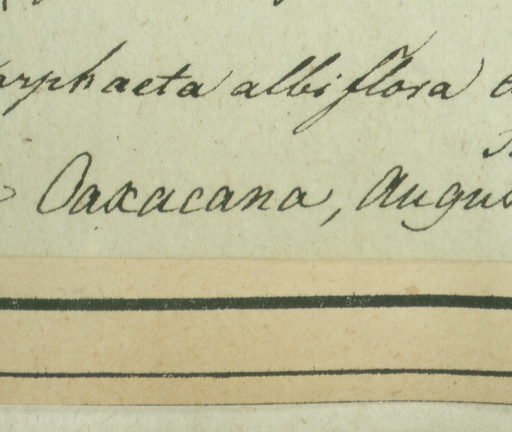 arphaeta albiflora
Oaxacana, Augus